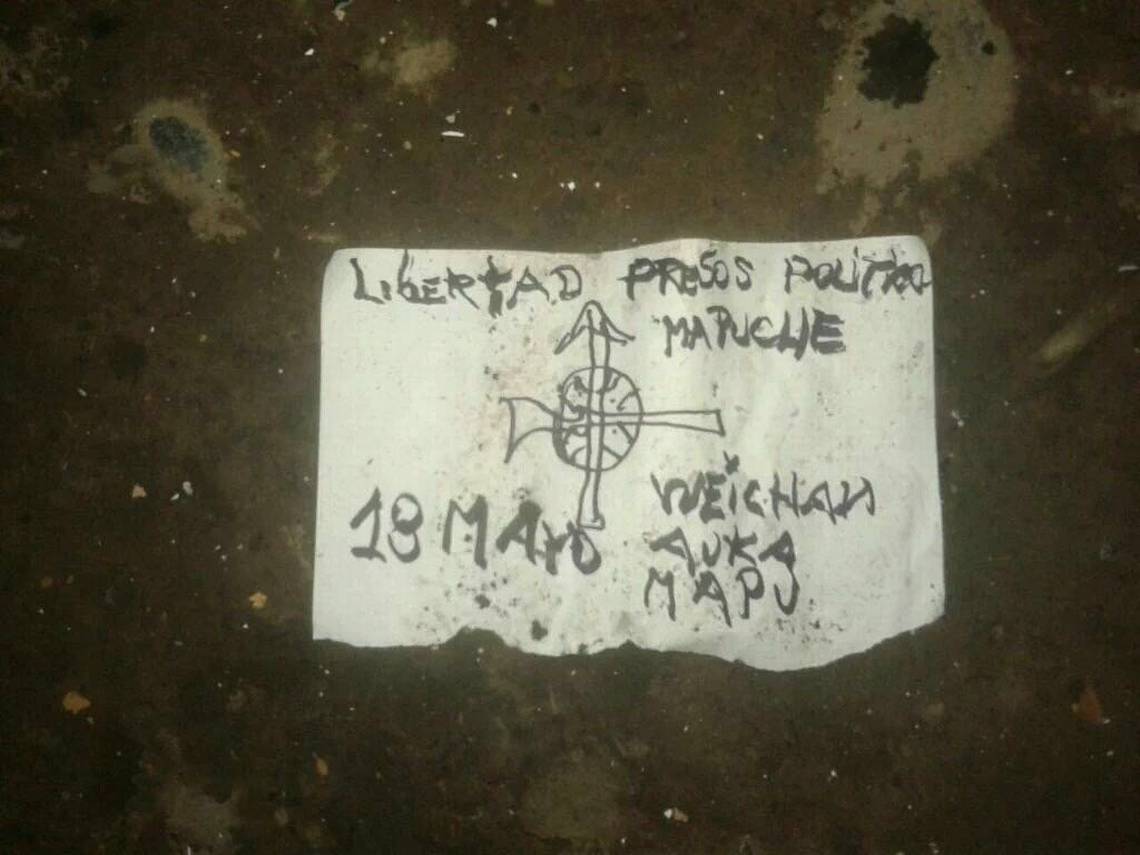 LiBERtAD PRESOS POLITICO
MAPUCHE
18 MAYO
WEiCHAN
AUKA
MAPU